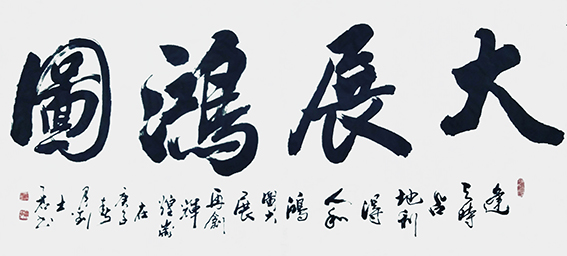 大展鴻圖
逢天時占地利得人和鴻圖大展再創輝煌歲在庚子